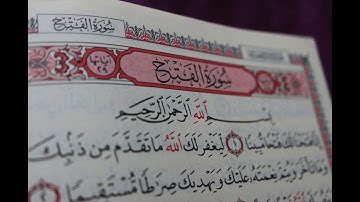 سُورَةُ الفَتْحِ
سُورَةُ الفَتْحِ
آيَاتُهَا ٢٩
بِسْمِ ٱللَّهِ ٱلرَّحْمَٰنِ ٱلرَّحِيمِ
إِنَّا فَتَحْنَا لَكَ فَتْحًا مُّبِينًا ١ لِّيَغْفِرَ لَكَ ٱللَّهُ مَا تَقَدَّمَ مِن ذَنۢبِكَ
وَمَا تَأَخَّرَ وَيُتِمَّ نِعْمَتَهُۥ عَلَيْكَ وَيَهْدِيَكَ صِرَٰطًا مُّسْتَقِيمًا ٢